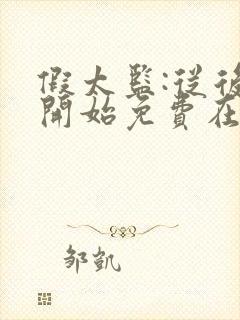 假太監:從後
開始免費在
邹凱